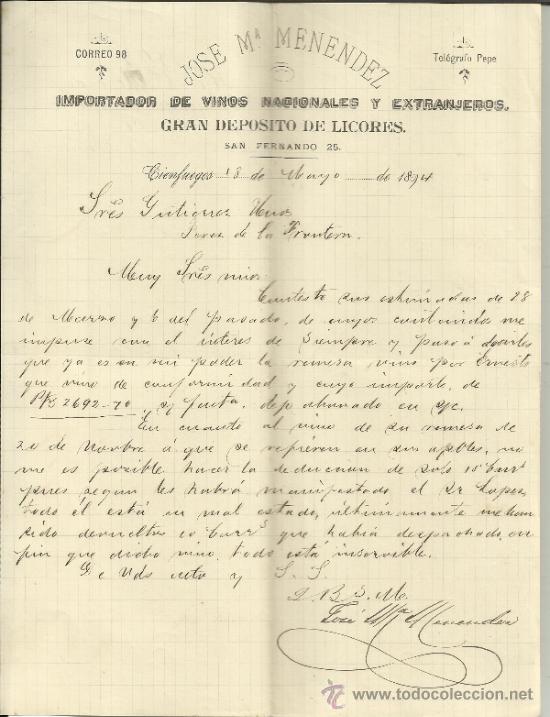 CORREO 98
JOSE Mª MENENDEZ
Telégrafo Pepe
IMPORTADOR DE VINOS NACIONALES Y EXTRANJEROS.
GRAN DEPOSITO DE LICORES.
SAN FERNANDO 25.
Cienfuegos 18 de Mayo de 1894
Sres Gutierrez Hnos
Jerez de la Frontera.
Muy Sres mios:
Contesto sus estimadas de 28
de Marzo y 6 del pasado, de cuyo contenido me
impuse con el interes de siempre y paso á decirles
que ya es en mi poder la remesa vino por Ernesto
que vino de conformidad y cuyo importe de
Pts 2692-70 s/ facta. dejo abonado en s/c.
En cuanto al vino de su remesa de
20 de Novbre á que se refieren en sus apbles, no
me es posible hacer la deduccion de solo 10
pues segun les habrá manifestado el Sr Lopez
todo él está en mal estado, ultimamente me han
sido devueltos 10 que habia despachado, en
fin que dicho vino todo está inservible.
De Vds atto y S. S.
Q. B. S. M.
José Mª Menendez
todocoleccion
www.todocoleccion.net